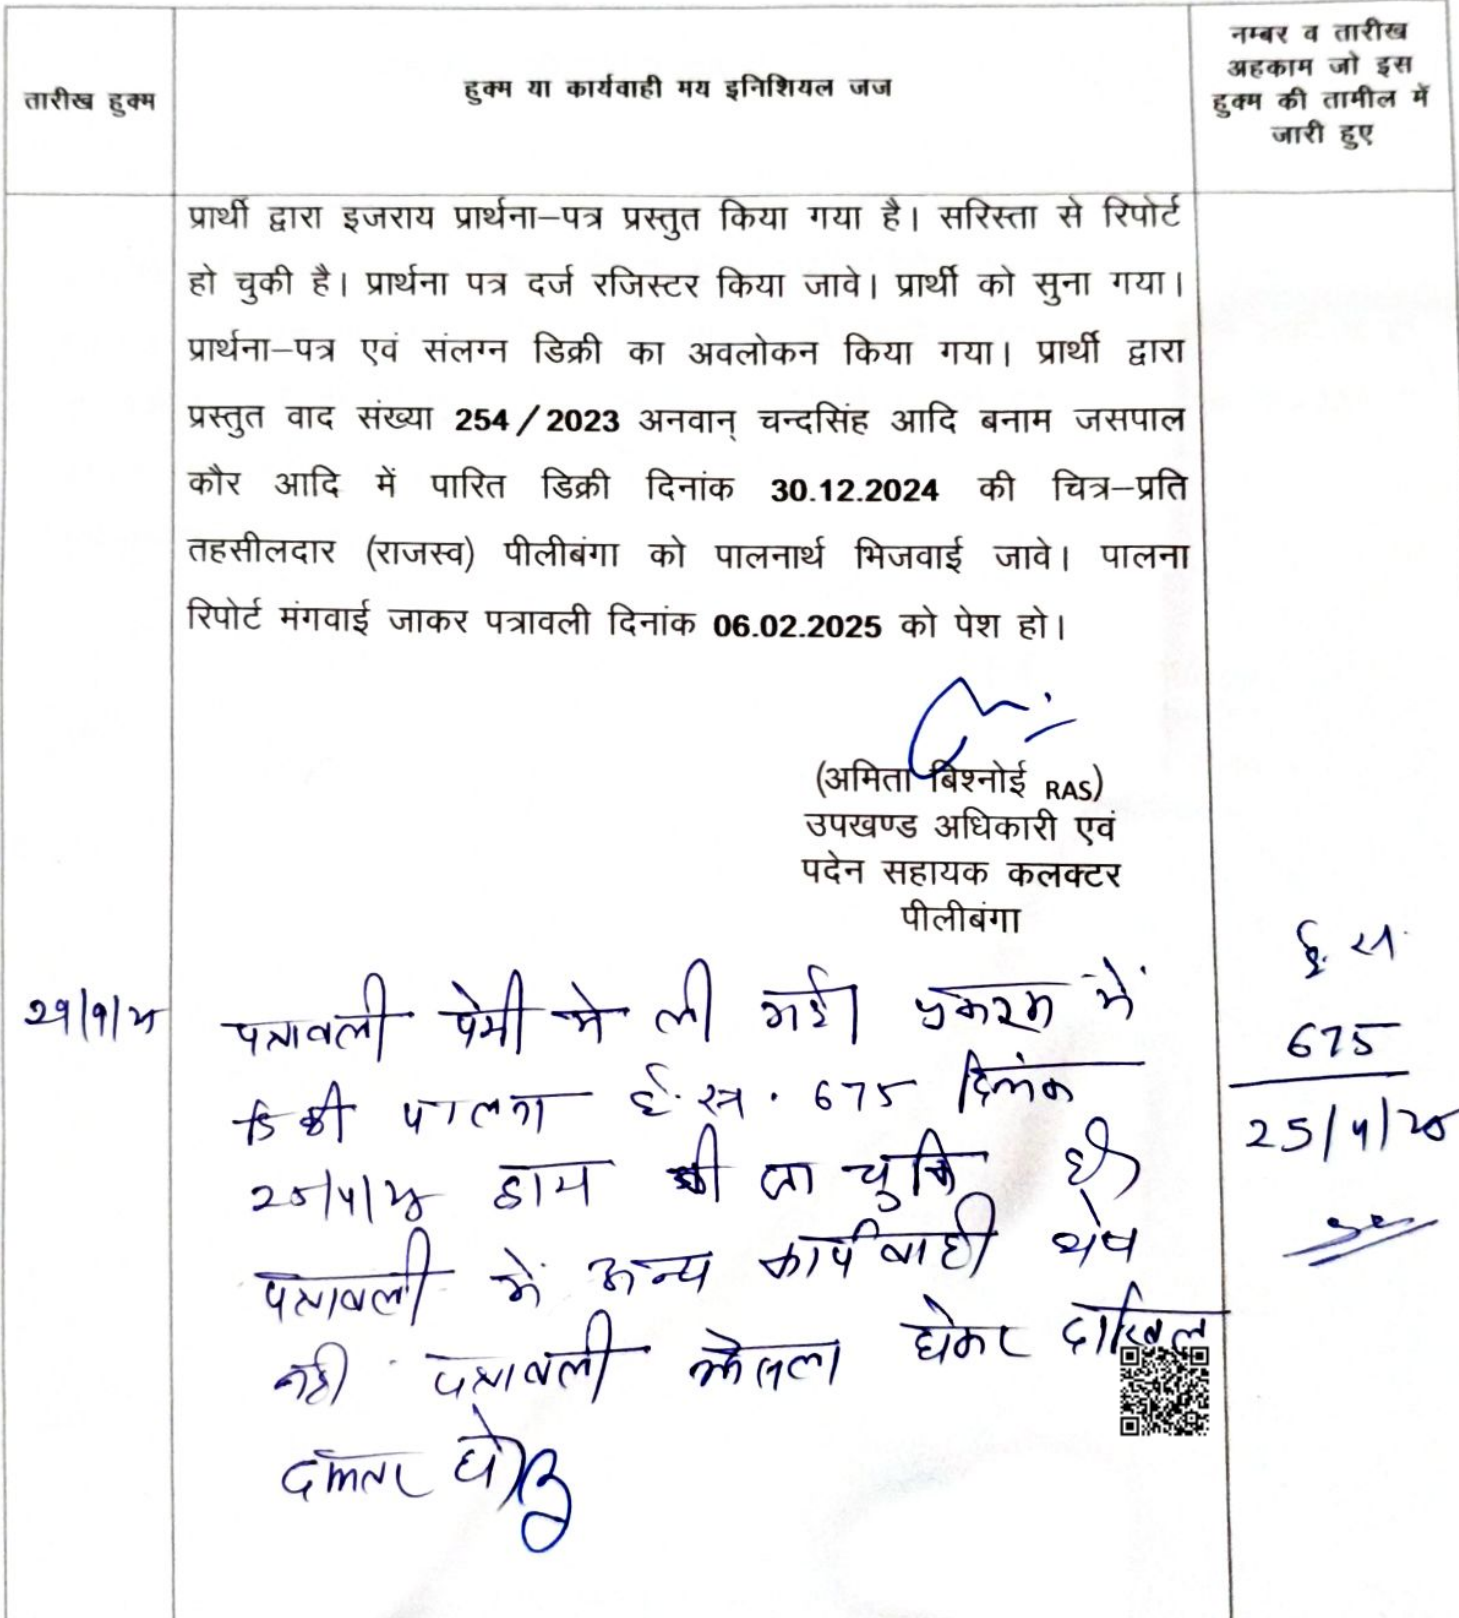 तारीख हुक्म
हुक्म या कार्यवाही मय इनिशियल जज
नम्बर व तारीख
अहकाम जो इस
हुक्म की तामील में
जारी हुए
प्रार्थी द्वारा इजराय प्रार्थना–पत्र प्रस्तुत किया गया है। सरिस्ता से रिपोर्ट
हो चुकी है। प्रार्थना पत्र दर्ज रजिस्टर किया जावे। प्रार्थी को सुना गया।
प्रार्थना–पत्र एवं संलग्न डिक्री का अवलोकन किया गया। प्रार्थी द्वारा
प्रस्तुत वाद संख्या 254/2023 अनवान् चन्दसिंह आदि बनाम जसपाल
कौर आदि में पारित डिक्री दिनांक 30.12.2024 की चित्र–प्रति
तहसीलदार (राजस्व) पीलीबंगा को पालनार्थ भिजवाई जावे। पालना
रिपोर्ट मंगवाई जाकर पत्रावली दिनांक 06.02.2025 को पेश हो।
(अमिता बिश्नोई RAS)
उपखण्ड अधिकारी एवं
पदेन सहायक कलक्टर
पीलीबंगा
पत्रावली पेशी मे ली गई। प्रकरण में
डिक्री पालना ई.रा. 675 दिनांक
की जा चुकि है।
पत्रावली में अन्य कार्यवाही शेष
नही पत्रावली फैसला होकर दाखिल
दफ्तर हो।
675